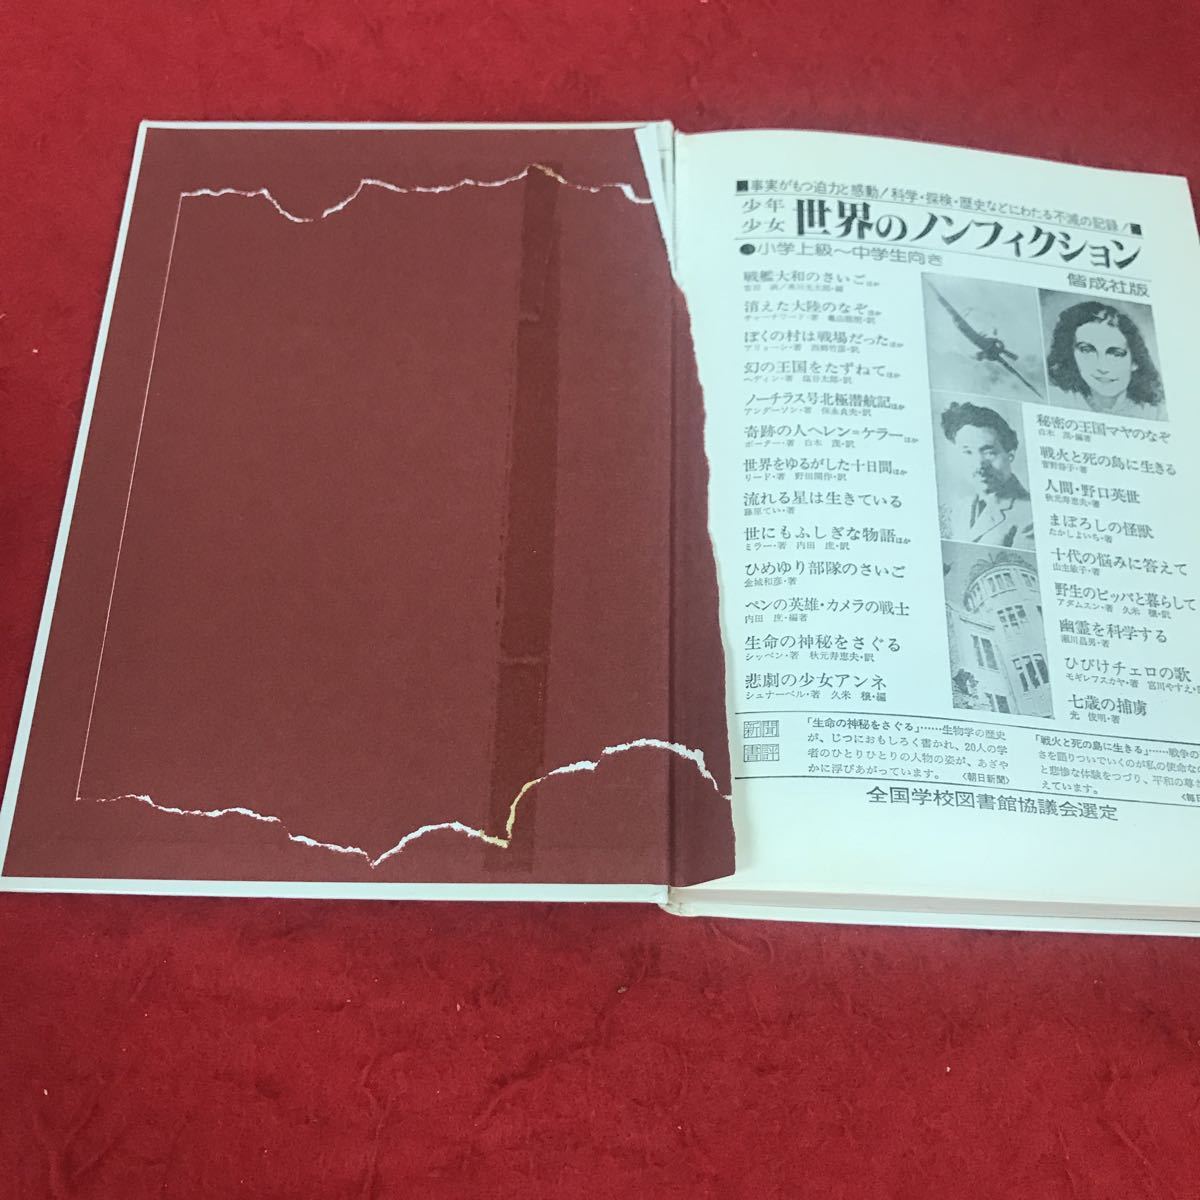 ■事実がもつ迫力と感動!科学・探検・歴史などにわたる不滅の記録!■
少年
少女
世界のノンフィクション
●小学上級〜中学生向き
偕成社版
戦艦大和のさいごほか
消えた大陸のなぞほか
チャーチワード・著 亀山龍樹・訳
ぼくの村は戦場だったほか
アリョーシン・著 西郷竹彦・訳
幻の王国をたずねてほか
ヘディン・著 塩谷太郎・訳
ノーチラス号北極潜航記ほか
アンダーソン・著 保永貞夫・訳
奇跡の人ヘレン=ケラーほか
ポーター・著 白木 茂・訳
世界をゆるがした十日間ほか
リード・著 野田開作・訳
流れる星は生きている
藤原てい・著
世にもふしぎな物語ほか
ミラー・著 内田 庶・訳
ひめゆり部隊のさいご
金城和彦・著
ペンの英雄・カメラの戦士
内田 庶・編著
生命の神秘をさぐる
シッペン・著 秋元寿恵夫・訳
悲劇の少女アンネ
シュナーベル・著 久米 穣・編
秘密の王国マヤのなぞ
白木 茂・編著
戦火と死の島に生きる
菅野静子・著
人間・野口英世
秋元寿恵夫・著
まぼろしの怪獣
たかしよいち・著
十代の悩みに答えて
山主敏子・著
野生のピッパと暮らして
アダムスン・著 久米 穣・訳
幽霊を科学する
瀬川昌男・著
ひびけチェロの歌
モギレフスカヤ・著 宮川やすえ・
七歳の捕虜
光 俊明・著
新聞
書評
「生命の神秘をさぐる」……生物学の歴史
が、じつにおもしろく書かれ、20人の学
者のひとりひとりの人物の姿が、あざや
かに浮びあがっています。 〈朝日新聞〉
「戦火と死の島に生きる」……戦争の
さを語りついでいくのが私の使命な
と悲惨な体験をつづり、平和の尊さ
えています。 〈毎日
全国学校図書館協議会選定